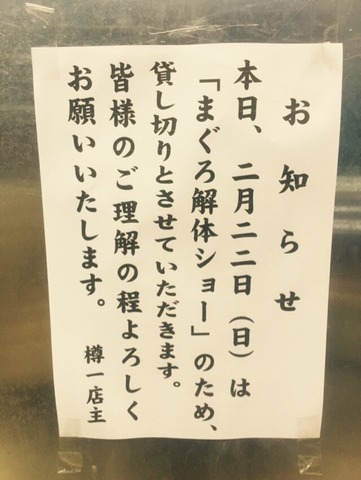 お知らせ
本日、二月二二日（日）は
「まぐろ解体ショー」のため、
貸し切りとさせていただきます。
皆様のご理解の程よろしく
お願いいたします。
樽一店主